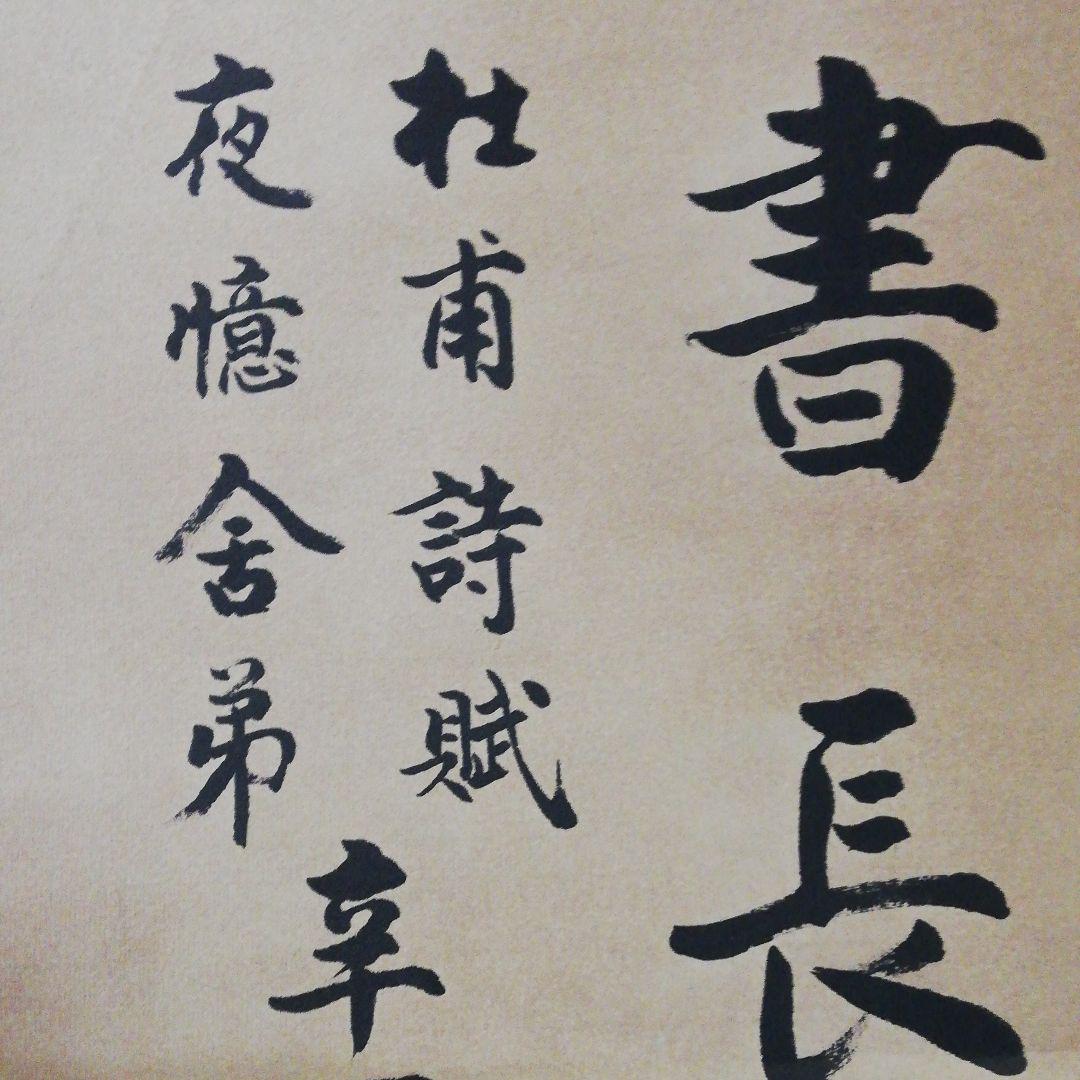 書長
杜甫詩賦
夜憶舍弟
辛